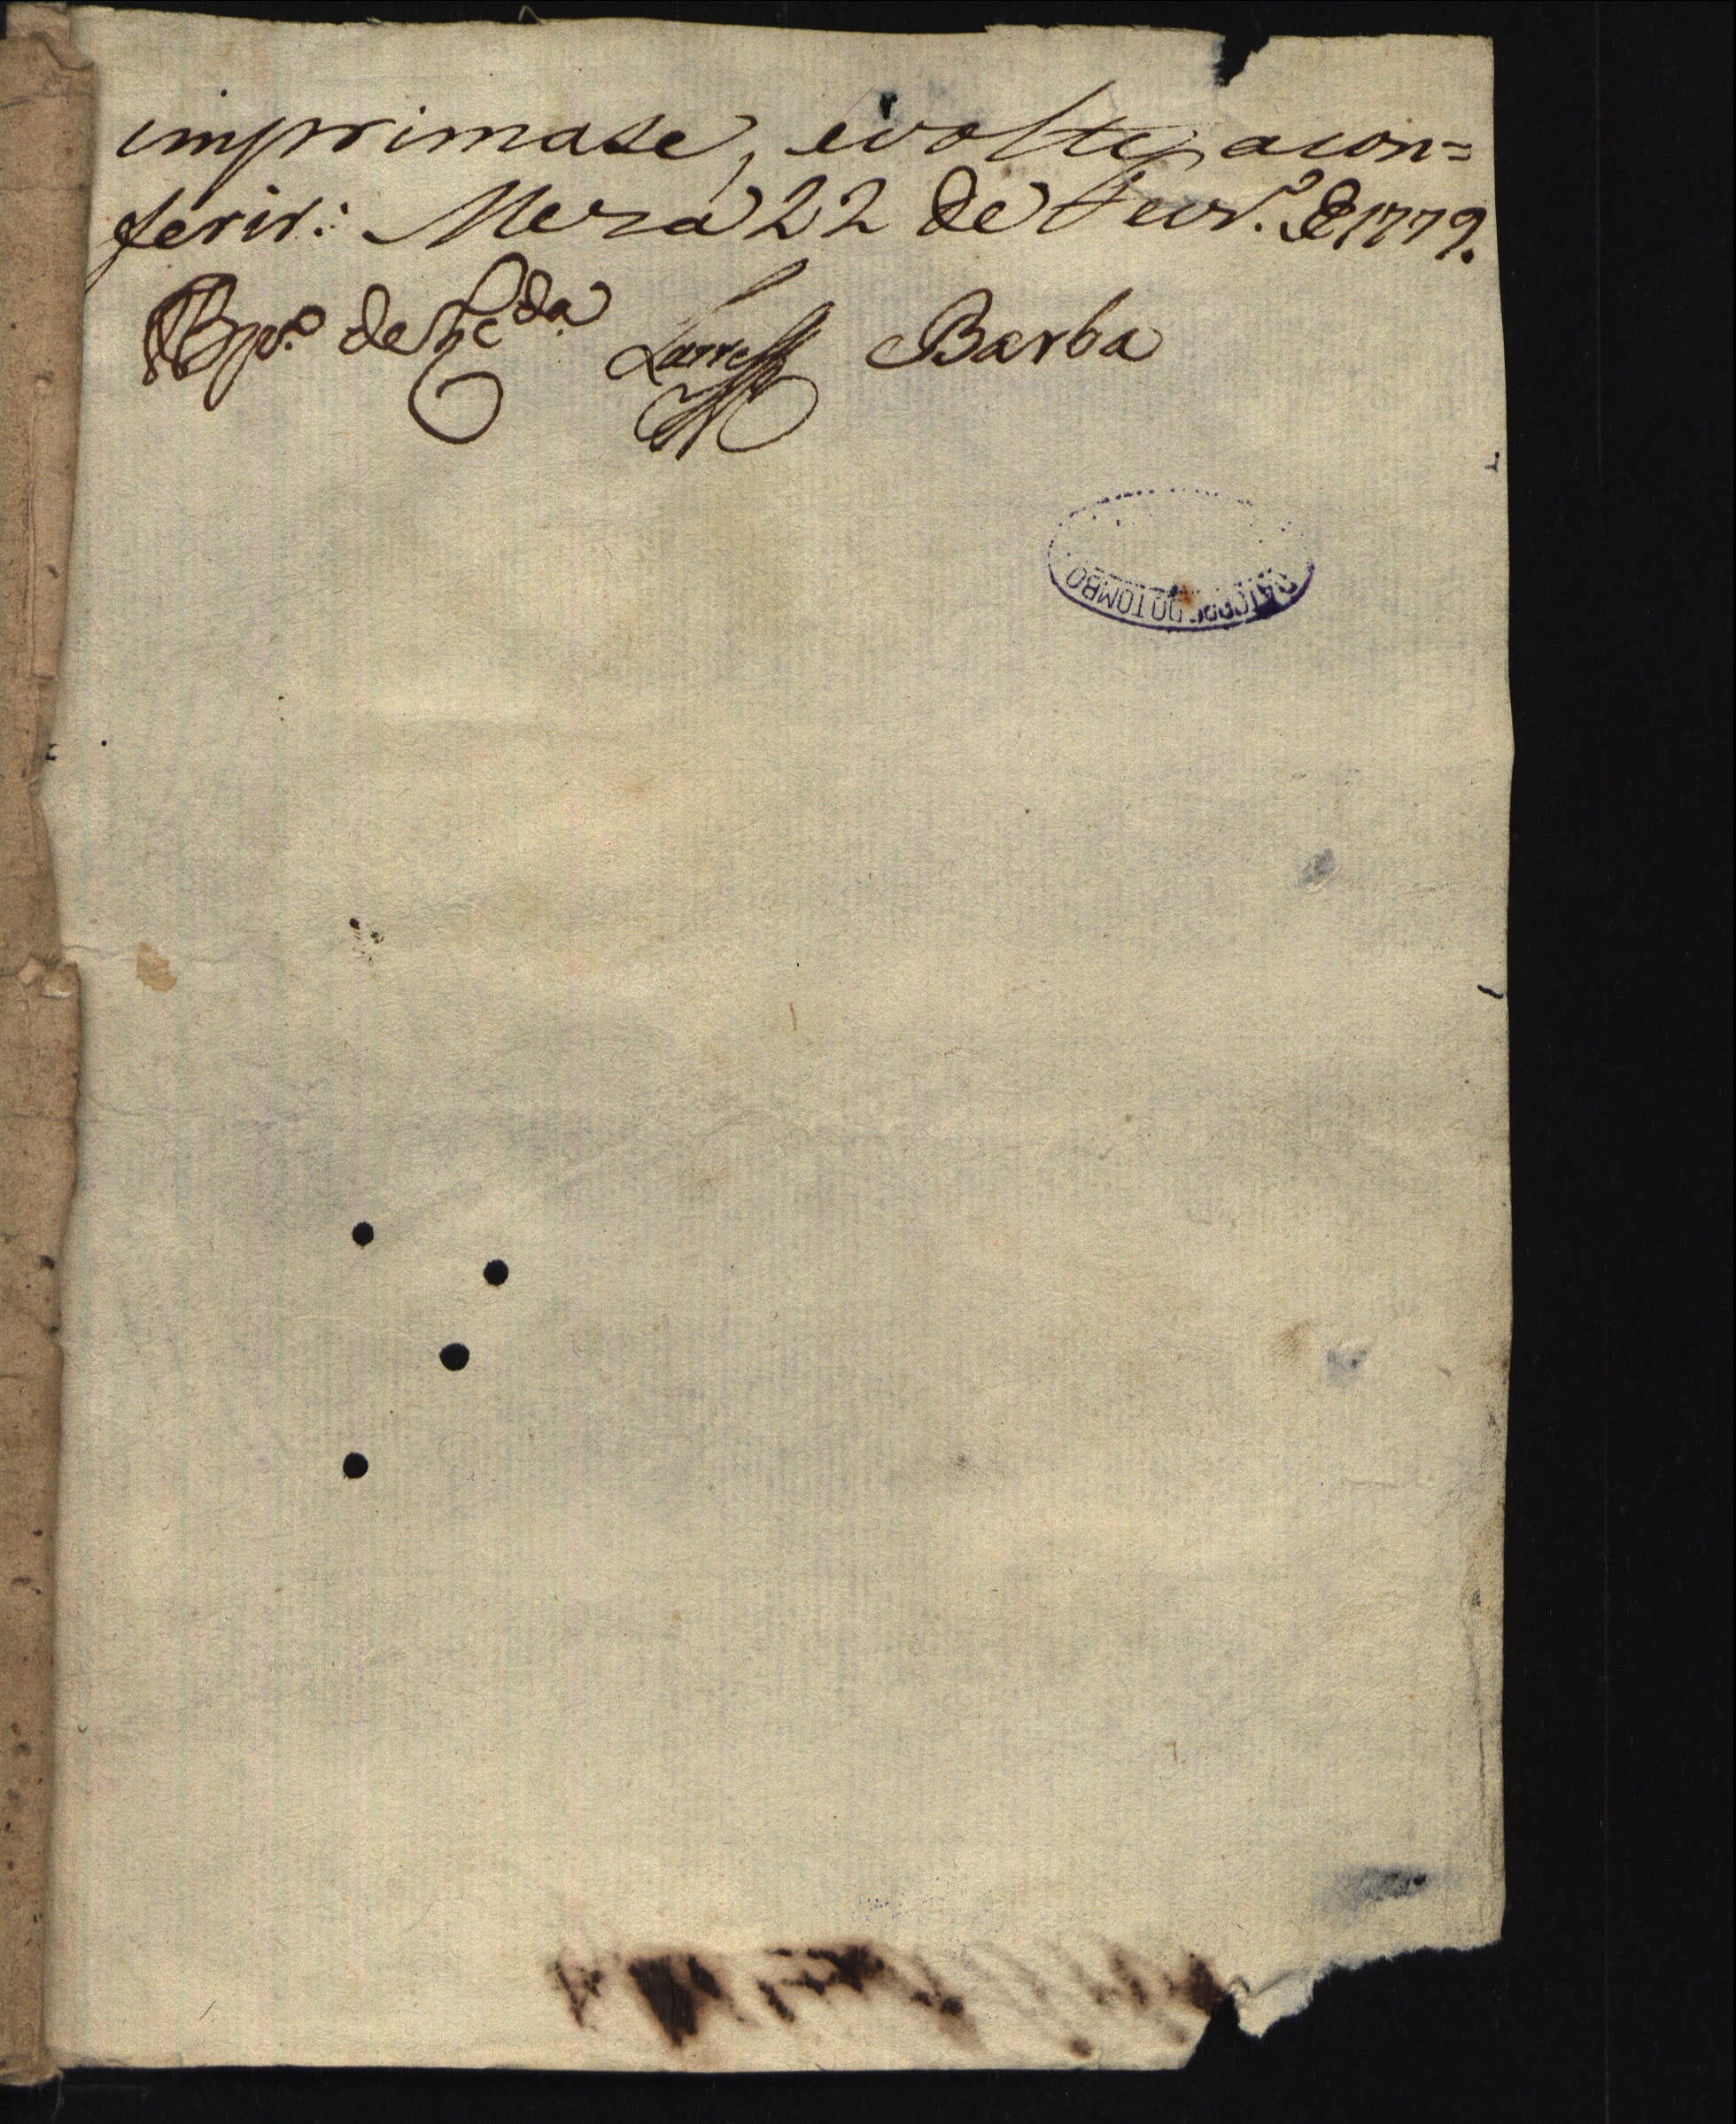 imprimase, evolte acon=
ferir: Meza 22 de Fevr.º de 1779.
Bpo. de Barba
DA TORRE DO TOMBO